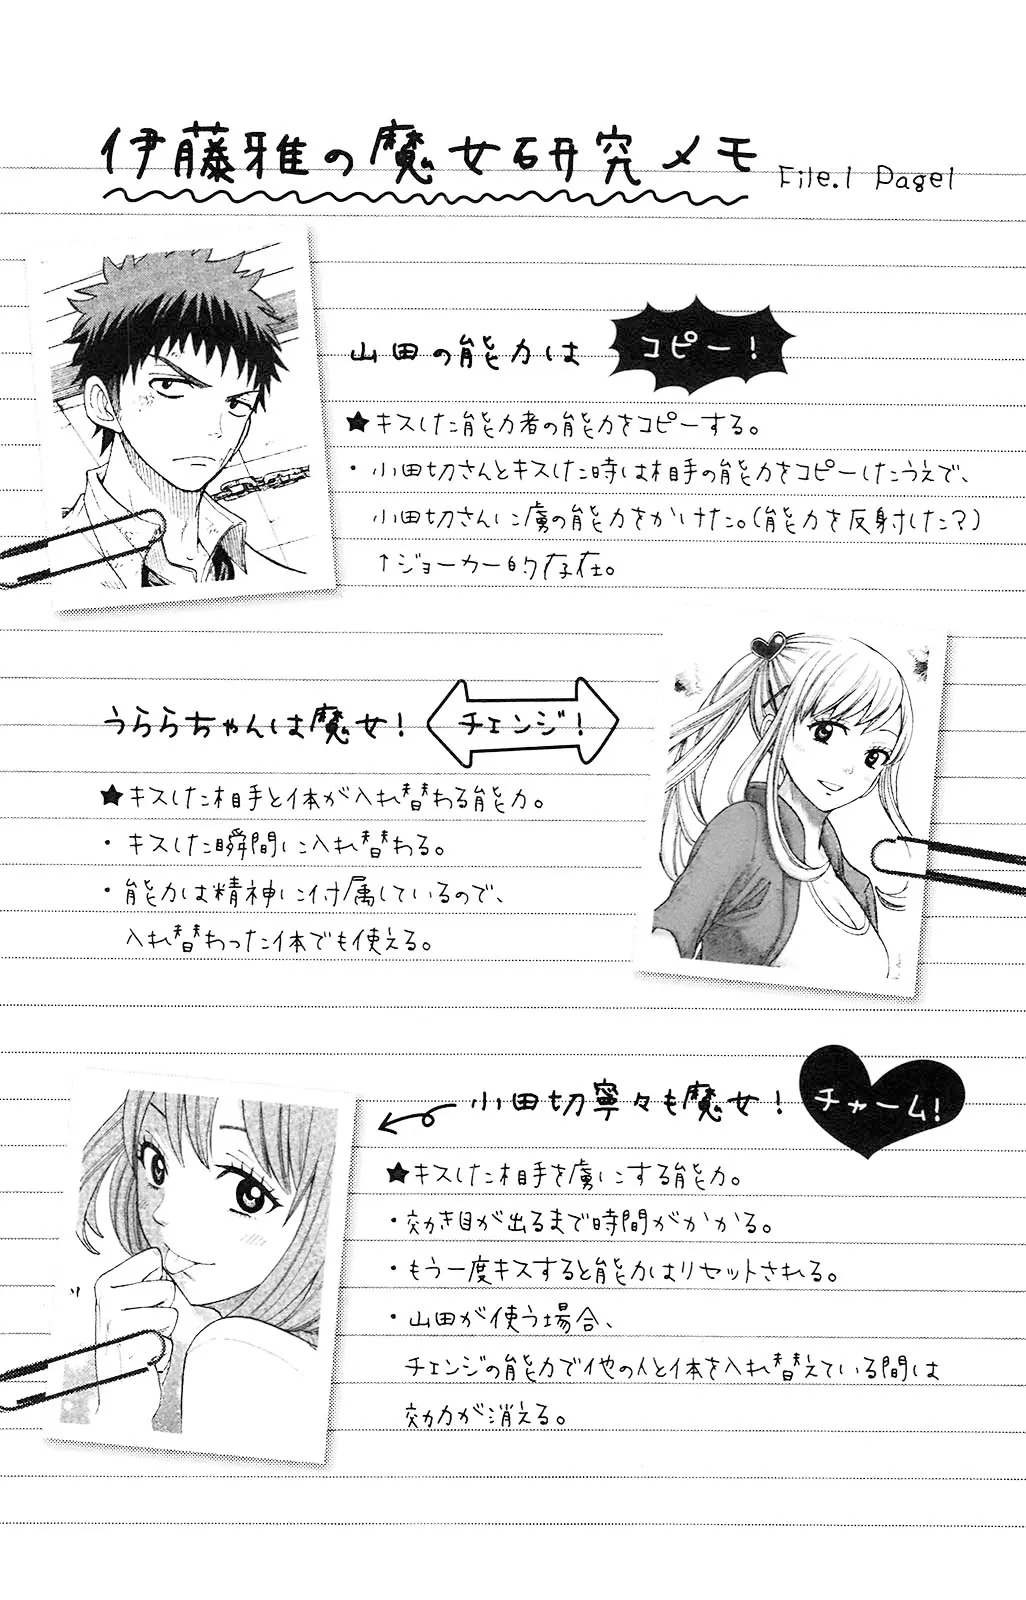 伊藤雅の魔女研究メモ File.1 Page1
山田の能力は コピー!
★キスした能力者の能力をコピーする。
・小田切さんとキスした時は相手の能力をコピーしたうえで、
小田切さんに虜の能力をかけた。(能力を反射した?)
↑ジョーカー的存在。
うららちゃんは魔女! チェンジ!
★キスした相手と体が入れ替わる能力。
・キスした瞬間に入れ替わる。
・能力は精神に付属しているので、
入れ替わった体でも使える。
小田切寧々も魔女! チャーム!
★キスした相手を虜にする能力。
・効き目が出るまで時間がかかる。
・もう一度キスすると能力はリセットされる。
・山田が使う場合、
チェンジの能力で他の人と体を入れ替えている間は
効力が消える。